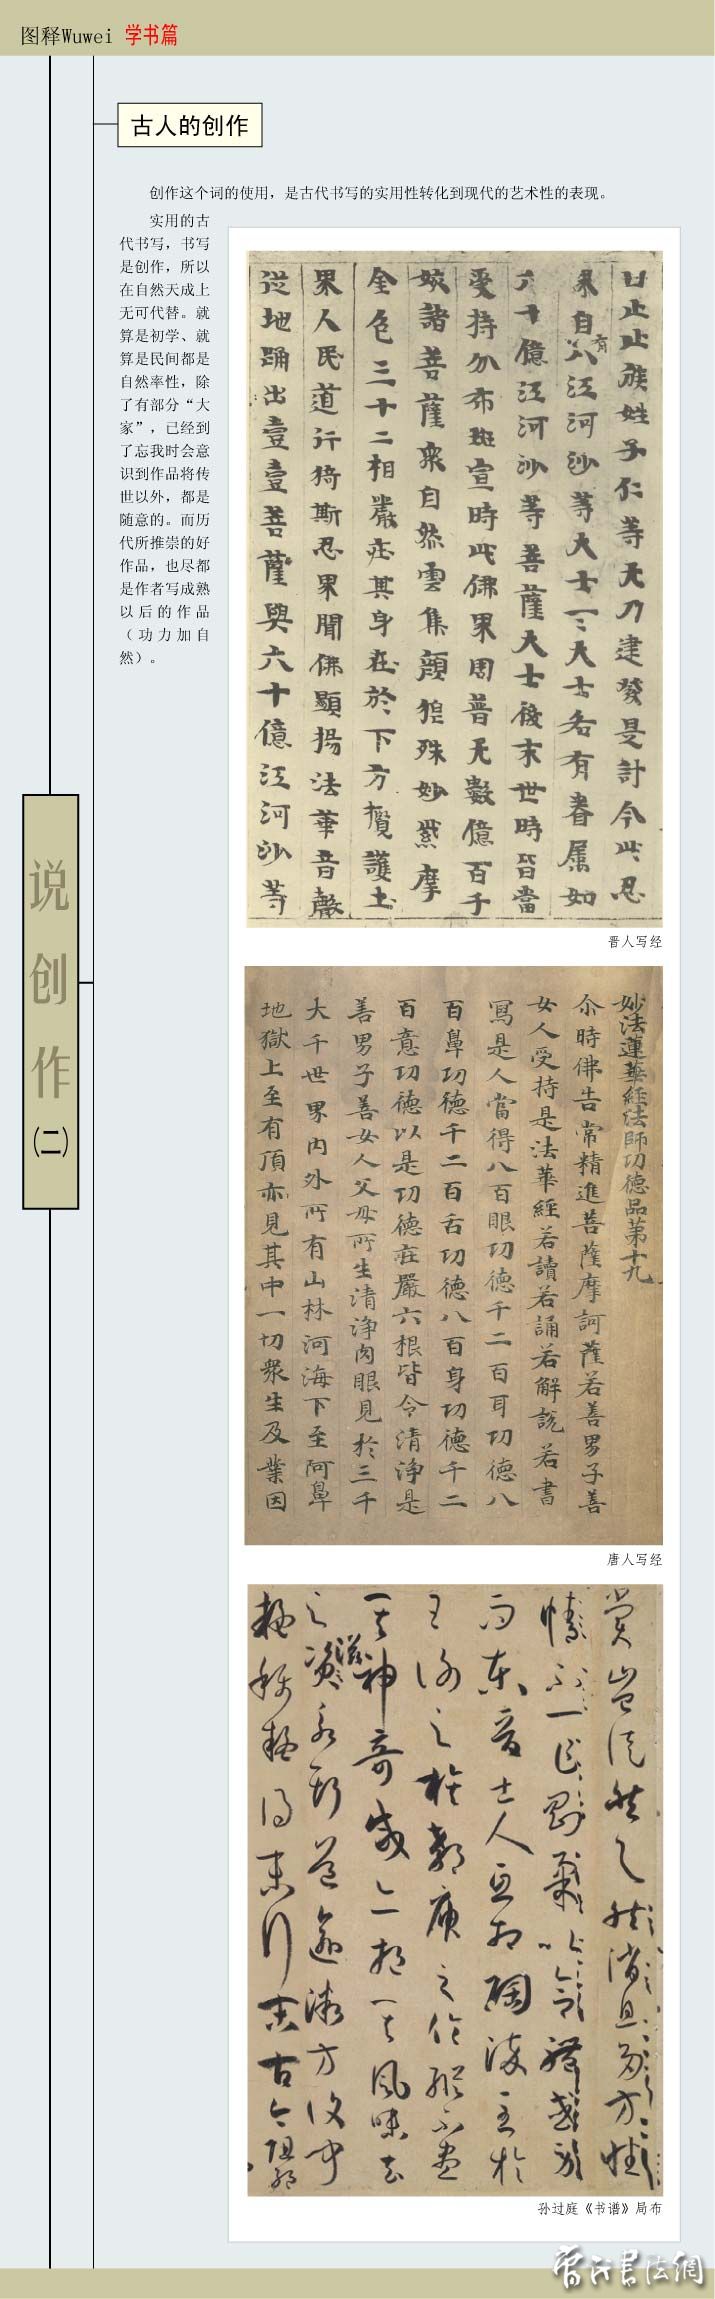 图释Wuwei 学书篇
古人的创作
创作这个词的使用，是古代书写的实用性转化到现代的艺术性的表现。
实用的古
代书写，书写
是创作，所以
在自然天成上
无可代替。就
算是初学、就
算是民间都是
自然率性，除
了有部分“大
家”，已经到
了忘我时会意
识到作品将传
世以外，都是
随意的。而历
代所推崇的好
作品，也尽都
是作者写成熟
以后的作品
（功力加自
然）。
说创作(二)
曰止止族姓子仁等无乃建發是計今此忍
界自有八江河沙等大士一一大士各有眷屬如
六十億江河沙等菩薩大士後末世時皆當
受持分布班宣時此佛界周普无數億百千
姟諸菩薩衆自然雲集顏貌殊妙紫摩
金色三十二相嚴莊其身在於下方攬護土
界人民道行猗斯忍界聞佛顯揚法華音聲
從地踊出壹壹菩薩與六十億江河沙等
晋人写经
妙法蓮華經法師功德品第十九
尒時佛告常精進菩薩摩訶薩若善男子善
女人受持是法華經若讀若誦若解說若書
寫是人當得八百眼功德千二百耳功德八
百鼻功德千二百舌功德八百身功德千二
百意功德以是功德莊嚴六根皆令清淨是
善男子善女人父母所生清淨肉眼見於三千
大千世界內外所有山林河海下至阿鼻
地獄上至有頂亦見其中一切衆生及業因
唐人写经
賞豈徒然與然消息多方性
情不一乍剛柔以合體
而東晉士人互相陶淬至於
王謝之族郗庾之倫縱不盡
其神奇咸亦挹其風味去
之滋永斯道逾微方復聞
疑稱疑得末行末古今阻絕
孙过庭《书谱》局布